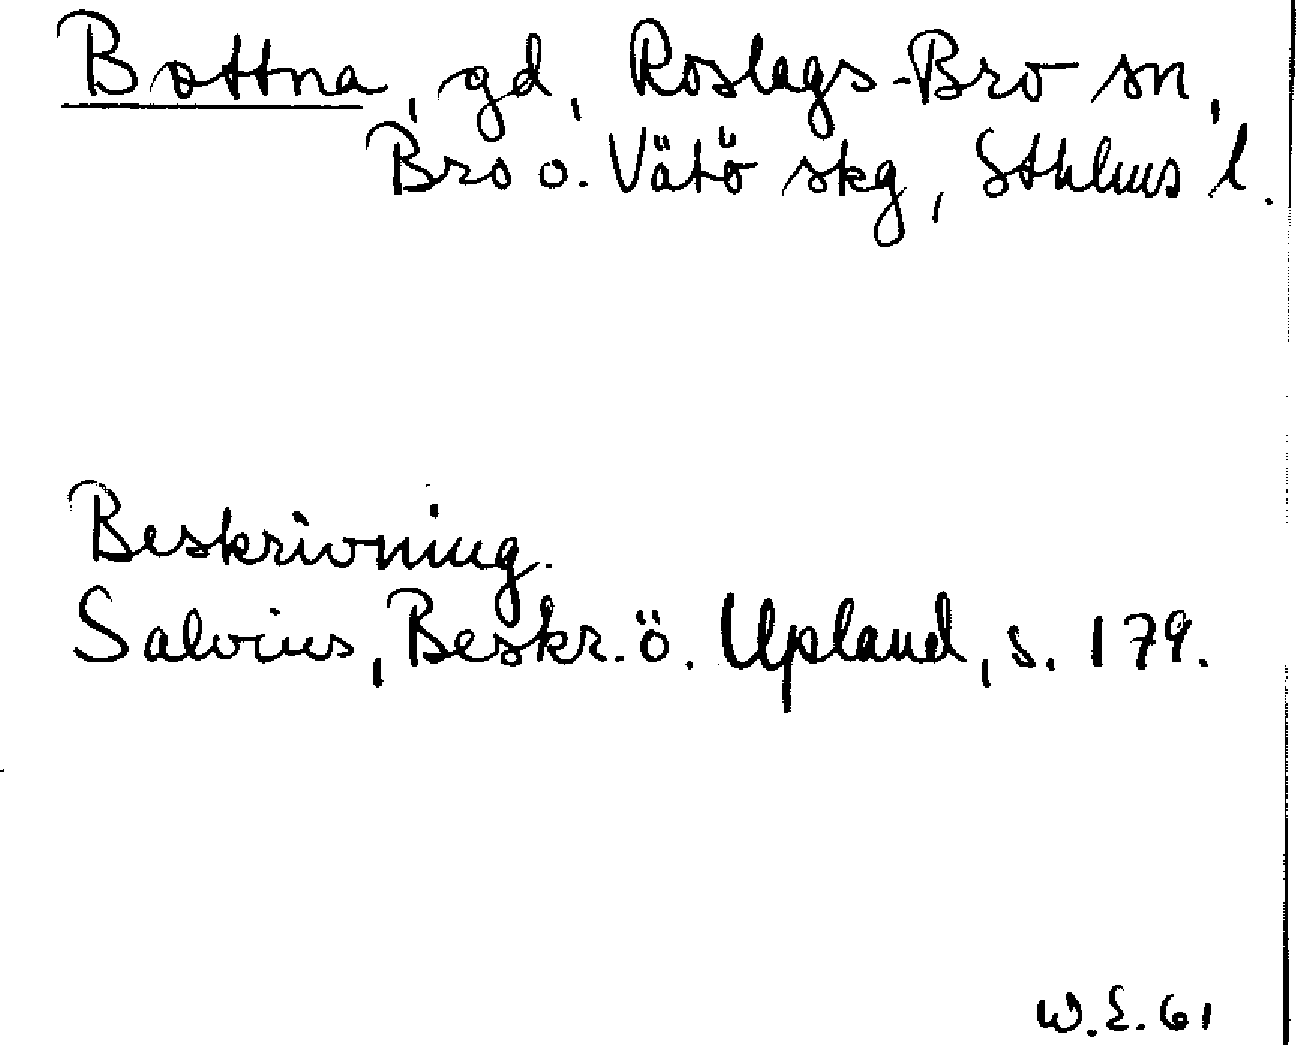 Bottna, gd, Roslags-Bro sn,
Bro o. Vätö skg, Sthlms l.
Beskrivning.
Salvius, Beskr. ö. Upland, s. 179.
W.E. 61